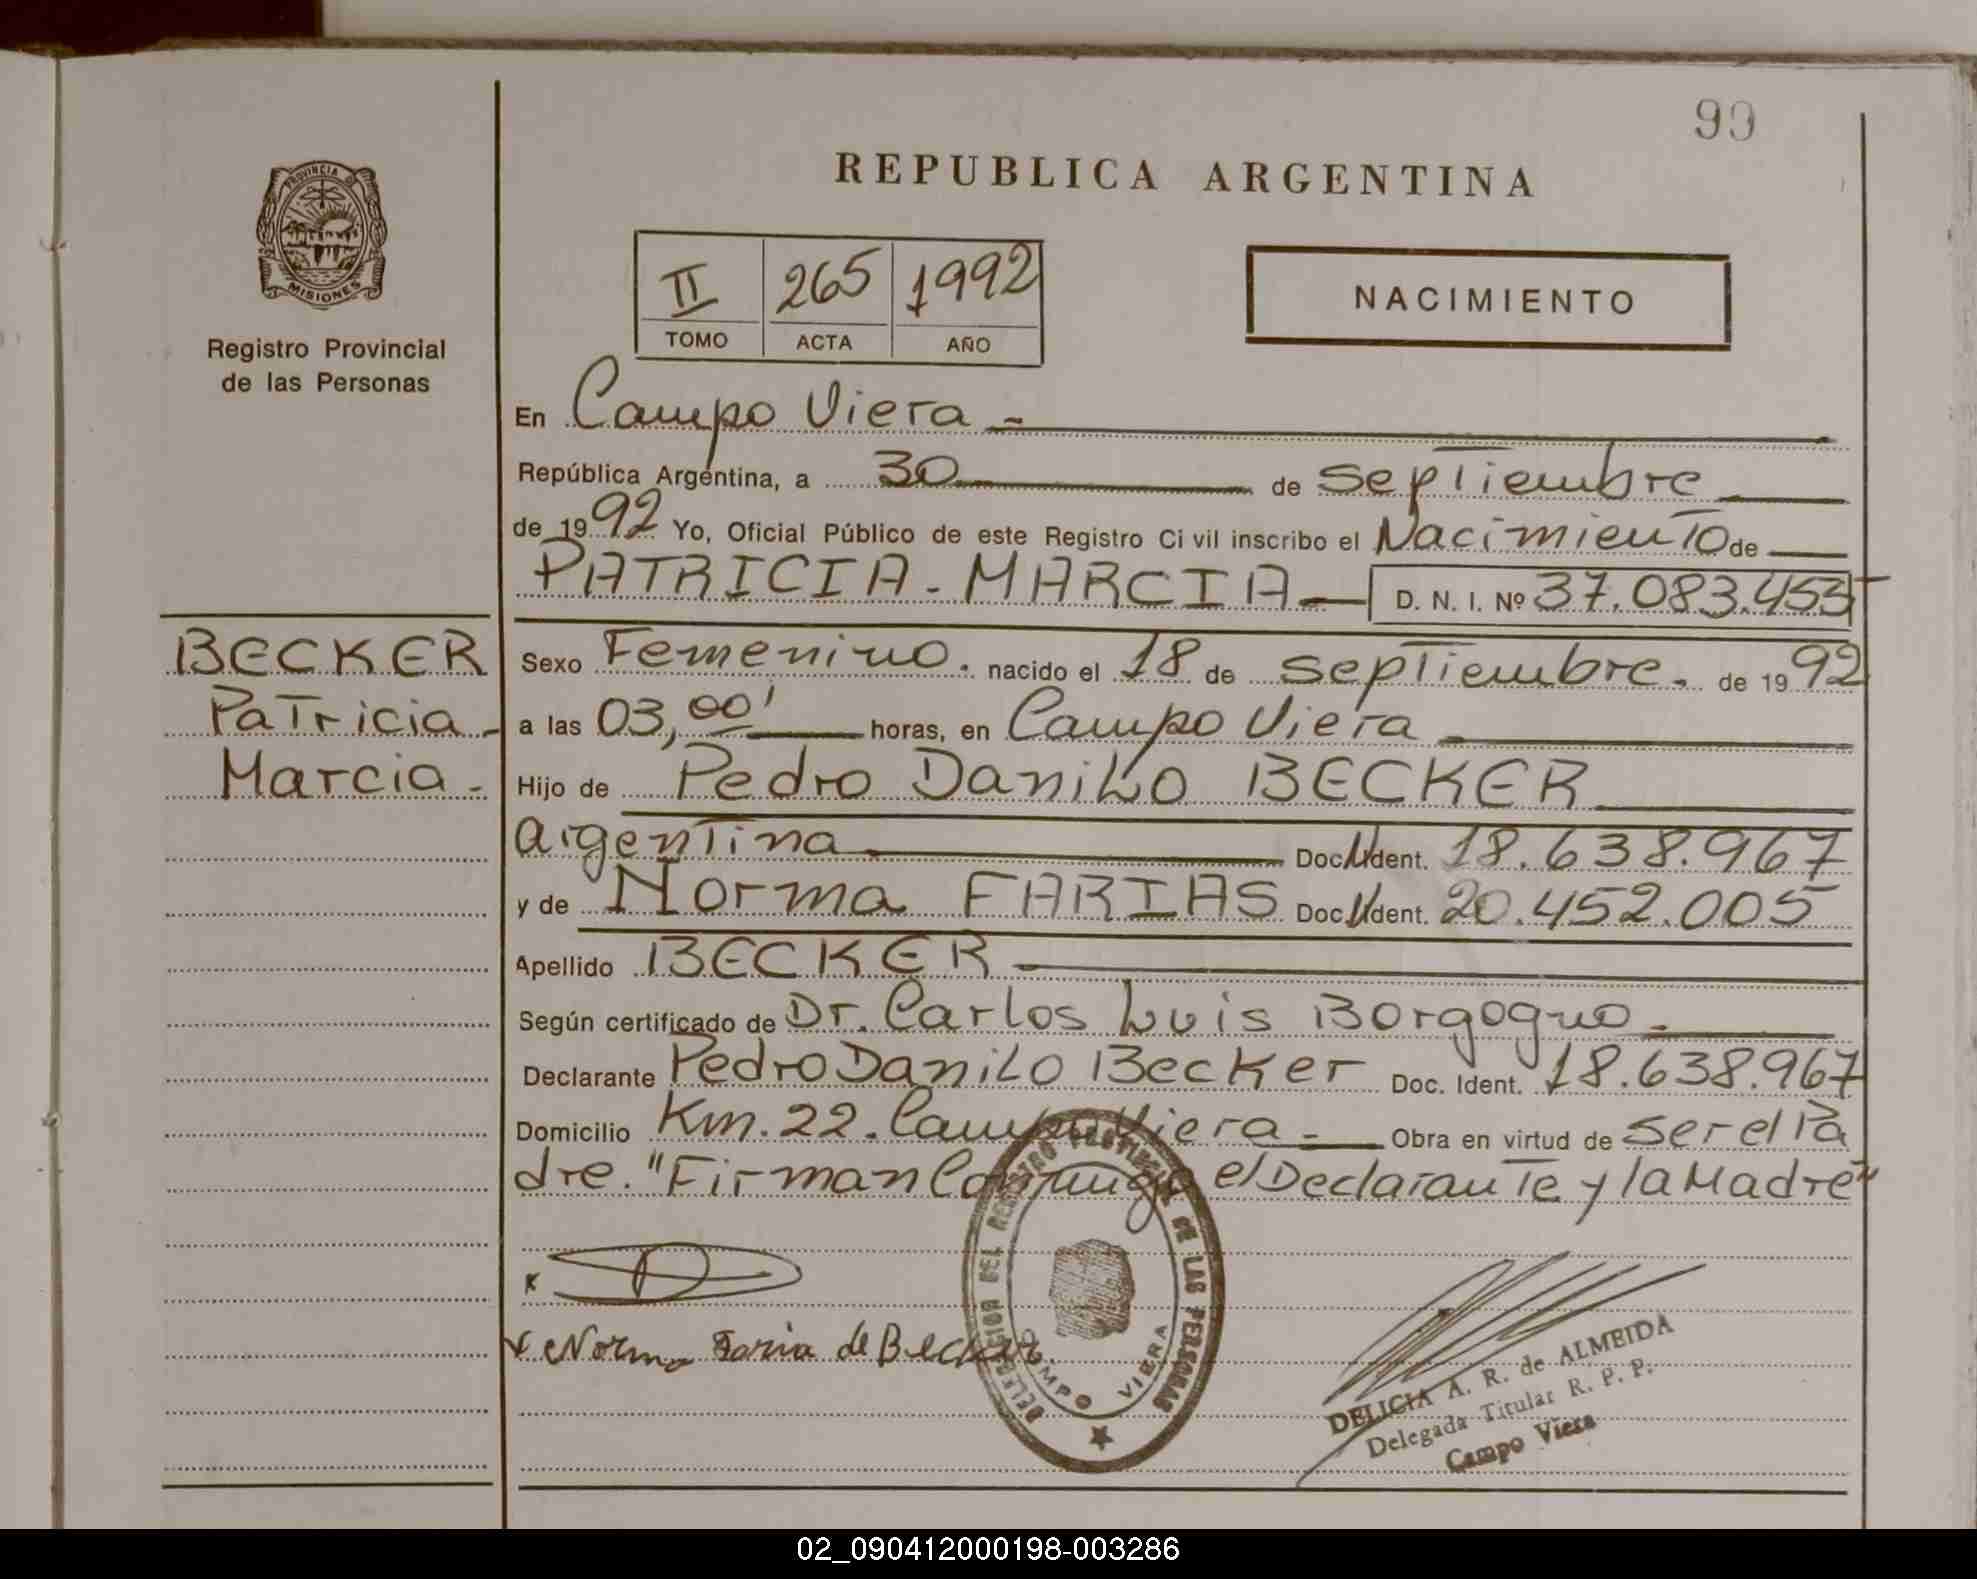 99
REPUBLICA ARGENTINA
PROVINCIA DE
MISIONES
Registro Provincial
de las Personas
II 265 1992
TOMO ACTA AÑO
NACIMIENTO
En Campo Viera -
República Argentina, a 30 de septiembre
de 1992 Yo, Oficial Público de este Registro Civil inscribo el Nacimiento de
PATRICIA - MARCIA D. N. I. Nº 37.083.453
BECKER
Patricia -
Marcia -
Sexo Femenino. nacido el 18 de septiembre. de 1992
a las 03,00' horas, en Campo Viera
Hijo de Pedro Danilo BECKER
argentina Doc. Ident. 18.638.967
y de Norma FARIAS Doc. Ident. 20.452.005
Apellido BECKER
Según certificado de Dr. Carlos Luis Borgogno -
Declarante Pedro Danilo Becker Doc. Ident. 18.638.967
Domicilio Km. 22. Campo Viera - Obra en virtud de ser el Pa
dre. "Firman Conjunto el Declarante y la Madre"
x Norma Faria de Becker
DELEGACION DEL REGISTRO PROVINCIAL DE LAS PERSONAS
CAMPO VIERA
DELICIA A. R. de ALMEIDA
Delegada Titular R. P. P.
Campo Viera
02_090412000198-003286